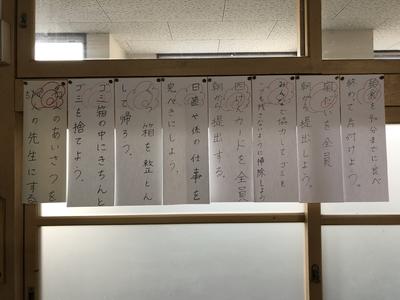 給食を40分までに食べ
終わって片付けよう。
全員
朝から提出しよう。
みんなで協力してゴミを
一つも残さないように掃除しよう
カードを全員
朝から提出する。
日直や係の仕事を
完ぺきにしよう。
箱を整とん
して帰ろう。
ゴミ箱の中にきちんと
ゴミを捨てよう。
のあいさつを
の先生にする